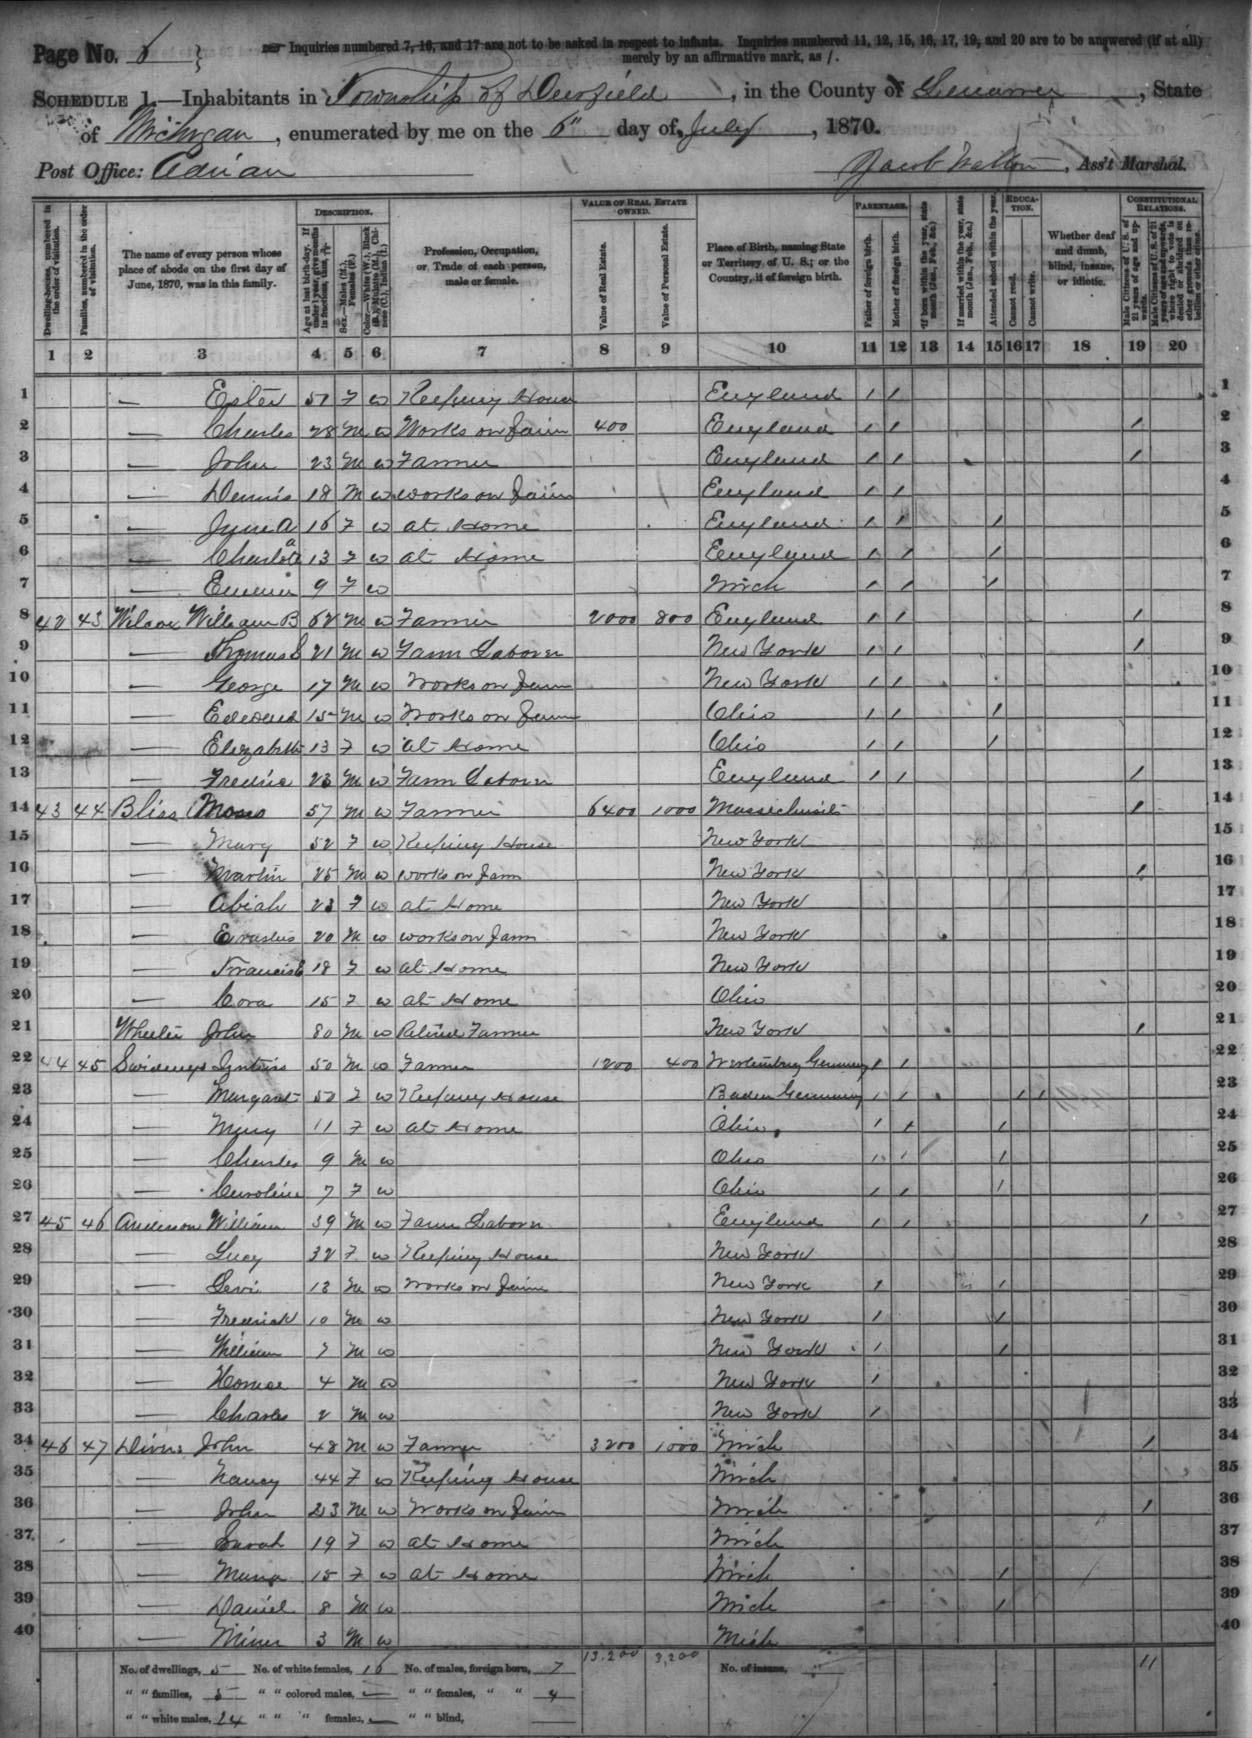 Page No. 6
Inquiries numbered 7, 16, and 17 are not to be asked in respect to infants. Inquiries numbered 11, 12, 15, 16, 17, 19, and 20 are to be answered (if at all)
merely by an affirmative mark, as /.
SCHEDULE 1.—Inhabitants in Township of Deerfield, in the County of Lenawee, State
of Michigan, enumerated by me on the 6" day of July, 1870.
Post Office: Adrian Jacob Walton, Ass't Marshal.
Dwelling-houses, numbered in the order of visitation.
Families, numbered in the order of visitation.
The name of every person whose place of abode on the first day of June, 1870, was in this family.
DESCRIPTION.
Age at last birth-day. If under 1 year, give months in fractions, thus,
Sex.—Males (M.), Females (F.)
Color.—White (W.), Black (B.), Mulatto (M.), Chinese (C.), Indian (I.)
Profession, Occupation, or Trade of each person, male or female.
VALUE OF REAL ESTATE OWNED.
Value of Real Estate.
Value of Personal Estate.
Place of Birth, naming State or Territory of U. S.; or the Country, if of foreign birth.
PARENTAGE.
Father of foreign birth.
Mother of foreign birth.
If born within the year, state month (Jan., Feb., &c.)
If married within the year, state month (Jan., Feb., &c.)
Attended school within the year.
EDUCATION.
Cannot read.
Cannot write.
Whether deaf and dumb, blind, insane, or idiotic.
CONSTITUTIONAL RELATIONS.
Male Citizens of U. S. of 21 years of age and upwards.
1 2 3 4 5 6 7 8 9 10 11 12 13 14 15 16 17 18 19 20
1 — Ester 51 F W Keeping House England / / 1
2 — Charles 28 M W Works on Farm 400 England / / / 2
3 — John 23 M W Farmer England / / / 3
4 — Dennis 18 M W works on Farm England / / 4
5 — Jane A 16 F W at Home England / / / 5
6 — Charlota 13 F W at Home England / / / 6
7 — Emma 9 F W Mich / / / 7
8 42 43 Wilcox William B 62 M W Farmer 2000 800 England / / / 8
9 — Thomas S 21 M W Farm Laborer New York / / / 9
10 — George 17 M W Works on Farm New York / / 10
11 — Edward 15 M W Works on Farm Ohio / / / 11
12 — Elizabeth 13 F W at Home Ohio / / / 12
13 — 23 M W Farm Laborer England / / / 13
14 43 44 Bliss Moses 57 M W Farmer 6400 1000 Massachusets / 14
15 — Mary 52 F W Keeping House New York 15
16 — Martin 25 M W works on Farm New York / 16
17 — Abiah 23 F W at Home New York 17
18 — Erastus 20 M W works on Farm New York 18
19 — Francis E 18 F W at Home New York 19
20 — Cora 15 F W at Home Ohio 20
21 Wheeler John 80 M W Retired Farmer New York / 21
22 44 45 50 M W Farmer 1200 400 Wertemburg Germany / / 22
23 — Margaret 52 F W Keeping House Baden Germany / / / / 23
24 — Mary 11 F W at Home Ohio / / / 24
25 — Charles 9 M W Ohio / / / 25
26 — Caroline 7 F W Ohio / / / 26
27 45 46 Anderson William 39 M W Farm Laborer England / / / 27
28 — Lucy 32 F W Keeping House New York 28
29 — Levi 13 M W Works on Farm New York / / 29
30 — Fredrick 10 M W New York / / 30
31 — William 7 M W New York / / 31
32 — 4 M W New York / 32
33 — Charles 2 M W New York / 33
34 46 47 John 48 M W Farmer 3200 1000 Mich / 34
35 — Nancy 44 F W Keeping House Mich 35
36 — John 23 M W Works on Farm Mich / 36
37 — Sarah 19 F W at Home Mich 37
38 — Maria 15 F W at Home Mich / 38
39 — Daniel 8 M W Mich / 39
40 — Miner 3 M W Mich 40
No. of dwellings, 5 No. of white females, 16 No. of males, foreign born, 7 13,200 3,200 No. of insane, 11
" " families, 5 " " colored males, — " " females, " " 4
" " white males, 24 " " " females, — " " blind,